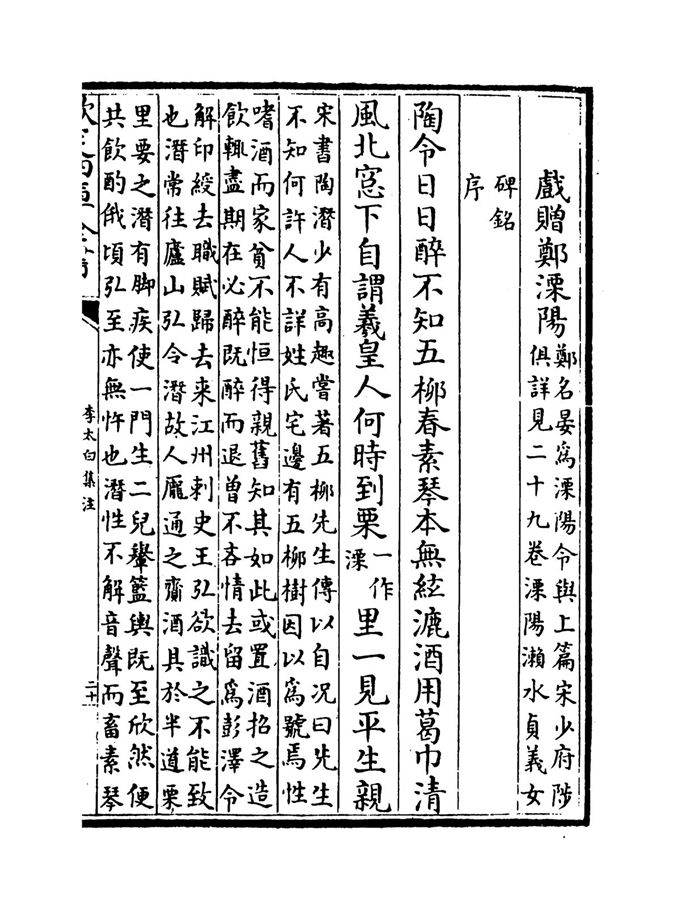 戲贈鄭溧陽鄭名晏爲溧陽令與上篇宋少府陟
俱詳見二十九卷溧陽瀨水貞義女
碑銘
序
陶令日日醉不知五柳春素琴本無絃漉酒用葛巾清
風北窻下自謂羲皇人何時到栗一作溧里一見平生親
宋書陶潛少有高趣嘗著五柳先生傳以自况曰先生
不知何許人不詳姓氏宅邊有五柳樹因以爲號焉性
嗜酒而家貧不能恒得親舊知其如此或置酒招之造
飲輒盡期在必醉既醉而退曾不吝情去留爲彭澤令
解印綬去職賦歸去来江州刺史王弘欲識之不能致
也潛常往廬山弘令潛故人龐通之齎酒具於半道栗
里要之潛有脚疾使一門生二兒轝籃輿既至欣然便
共飲酌俄頃弘至亦無忤也潛性不解音聲而畜素琴
李太白集注
二十